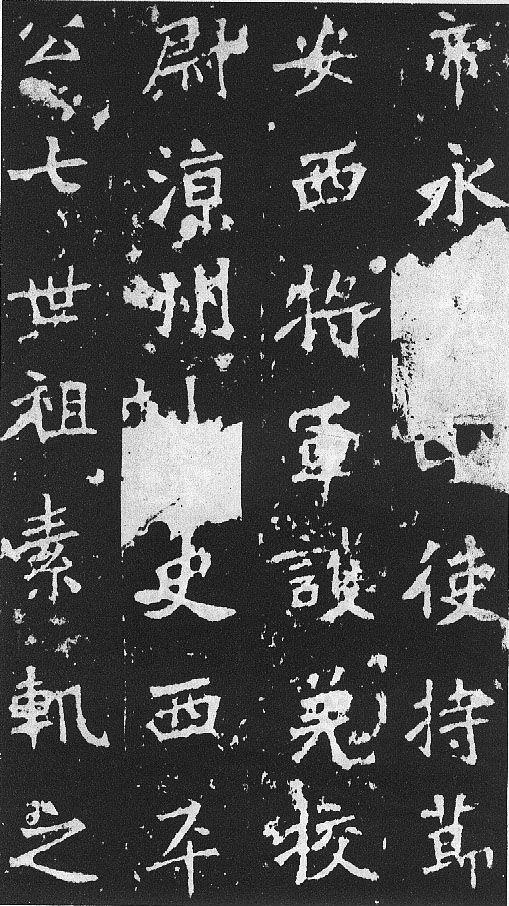 帝永中使持節
安西將軍護羌校
尉涼州史西平
公七世祖素軌之